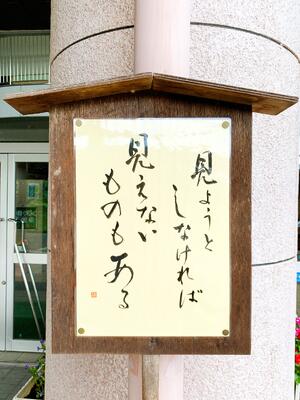 見ようと
しなければ
見えない
ものもある